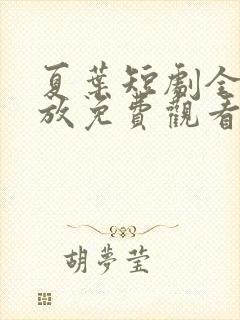 夏葉短劇全
放免費觀看
胡夢瑩